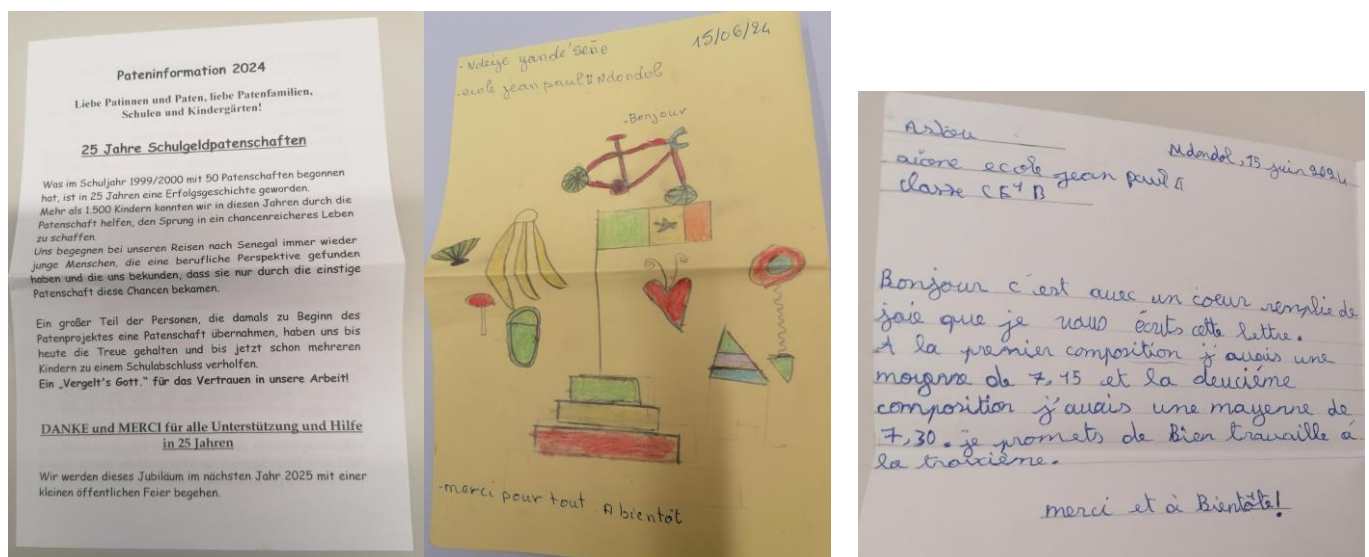 Pateninformation 2024
Liebe Patinnen und Paten, liebe Patenfamilien,
Schulen und Kindergärten!
25 Jahre Schulgeldpatenschaften
Was im Schuljahr 1999/2000 mit 50 Patenschaften begonnen
hat, ist in 25 Jahren eine Erfolgsgeschichte geworden.
Mehr als 1.500 Kindern konnten wir in diesen Jahren durch die
Patenschaft helfen, den Sprung in ein chancenreicheres Leben
zu schaffen.
Uns begegnen bei unseren Reisen nach Senegal immer wieder
junge Menschen, die eine berufliche Perspektive gefunden
haben und die uns bekunden, dass sie nur durch die einstige
Patenschaft diese Chancen bekamen.
Ein großer Teil der Personen, die damals zu Beginn des
Patenprojektes eine Patenschaft übernahmen, haben uns bis
heute die Treue gehalten und bis jetzt schon mehreren
Kindern zu einem Schulabschluss verholfen.
Ein „Vergelt's Gott." für das Vertrauen in unsere Arbeit!
DANKE und MERCI für alle Unterstützung und Hilfe
in 25 Jahren
Wir werden dieses Jubiläum im nächsten Jahr 2025 mit einer
kleinen öffentlichen Feier begehen.
15/06/24
. Ndeye yande
. ecole jean paul II Ndondol
. Bonjour
. merci pour tout . A bientôt
Mdondol, 15 juin 2024
ecole jean paul II
classe CE1 B
Bonjour c'est avec un coeur remplie de
joie que je vous écrits cette lettre.
A la premier composition j'avais une
moyenne de 7,15 et la deuciéme
composition j'avais une mayenne de
7,30. je promets de Bien travaille à
la troixiéme.
merci et à Bientôte!